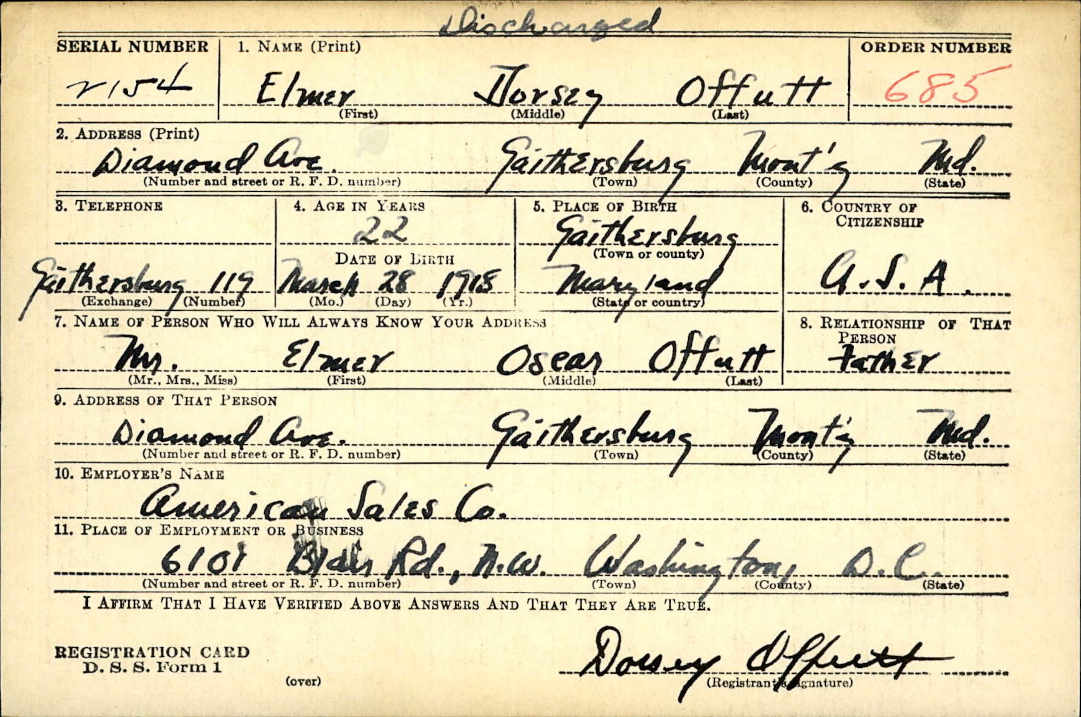 Discharged
SERIAL NUMBER 1. NAME (Print) ORDER NUMBER
2154 Elmer Dorsey Offutt 685
(First) (Middle) (Last)
2. ADDRESS (Print)
Diamond Ave. Gaithersburg Mont'g Md.
(Number and street or R. F. D. number) (Town) (County) (State)
3. TELEPHONE 4. AGE IN YEARS 5. PLACE OF BIRTH 6. COUNTRY OF CITIZENSHIP
22 Gaithersburg
(Town or county)
DATE OF BIRTH
Gaithersburg 119 March 28 1918 Maryland U.S.A.
(Exchange) (Number) (Mo.) (Day) (Yr.) (State or country)
7. NAME OF PERSON WHO WILL ALWAYS KNOW YOUR ADDRESS 8. RELATIONSHIP OF THAT PERSON
Mr. Elmer Oscar Offutt Father
(Mr., Mrs., Miss) (First) (Middle) (Last)
9. ADDRESS OF THAT PERSON
Diamond Ave. Gaithersburg Mont'g Md.
(Number and street or R. F. D. number) (Town) (County) (State)
10. EMPLOYER'S NAME
American Sales Co.
11. PLACE OF EMPLOYMENT OR BUSINESS
6101 Blair Rd., N.W. Washington, D.C.
(Number and street or R. F. D. number) (Town) (County) (State)
I AFFIRM THAT I HAVE VERIFIED ABOVE ANSWERS AND THAT THEY ARE TRUE.
REGISTRATION CARD
D. S. S. Form 1
Dorsey Offutt
(over) (Registrant's signature)